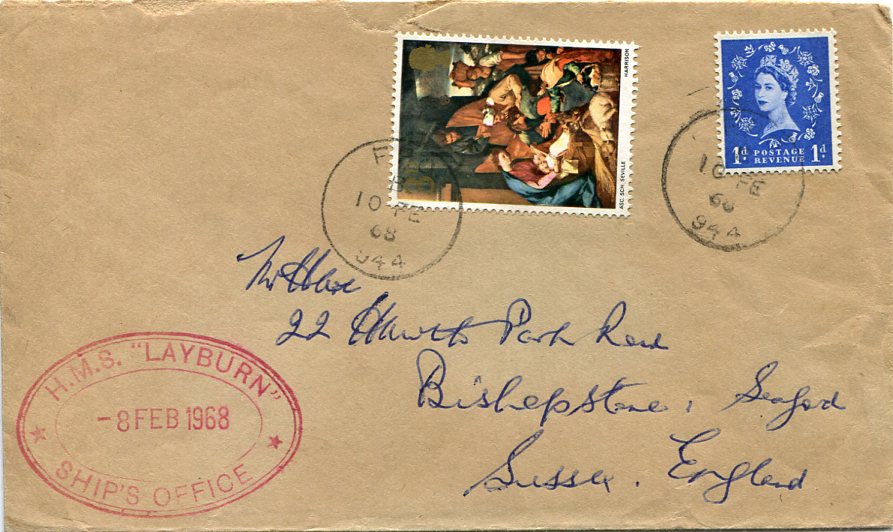 HARRISON
ASC. SCH. SEVILLE
1d POSTAGE REVENUE 1d
F
10 FE
68
944
10 FE
68
944
Mr
22 Park Road
Bishopstone, Seaford
Sussex. England
H.M.S. "LAYBURN"
-8 FEB 1968
SHIP'S OFFICE